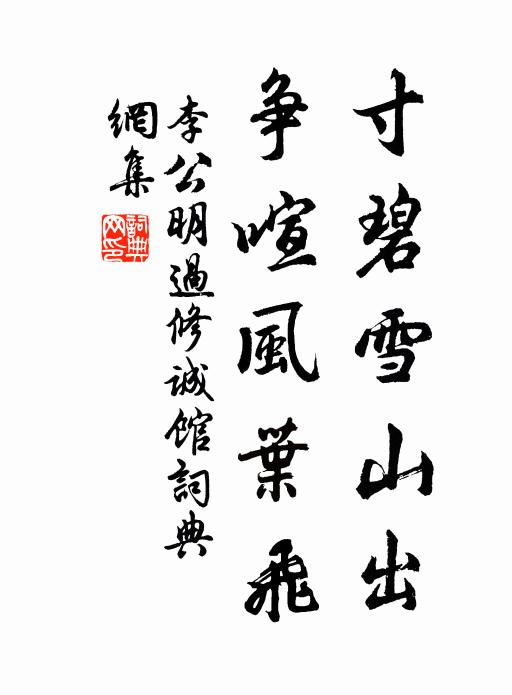 寸碧雪山出
爭喧風葉飛
李公明過修誠館詞典
網集
詞典
网印